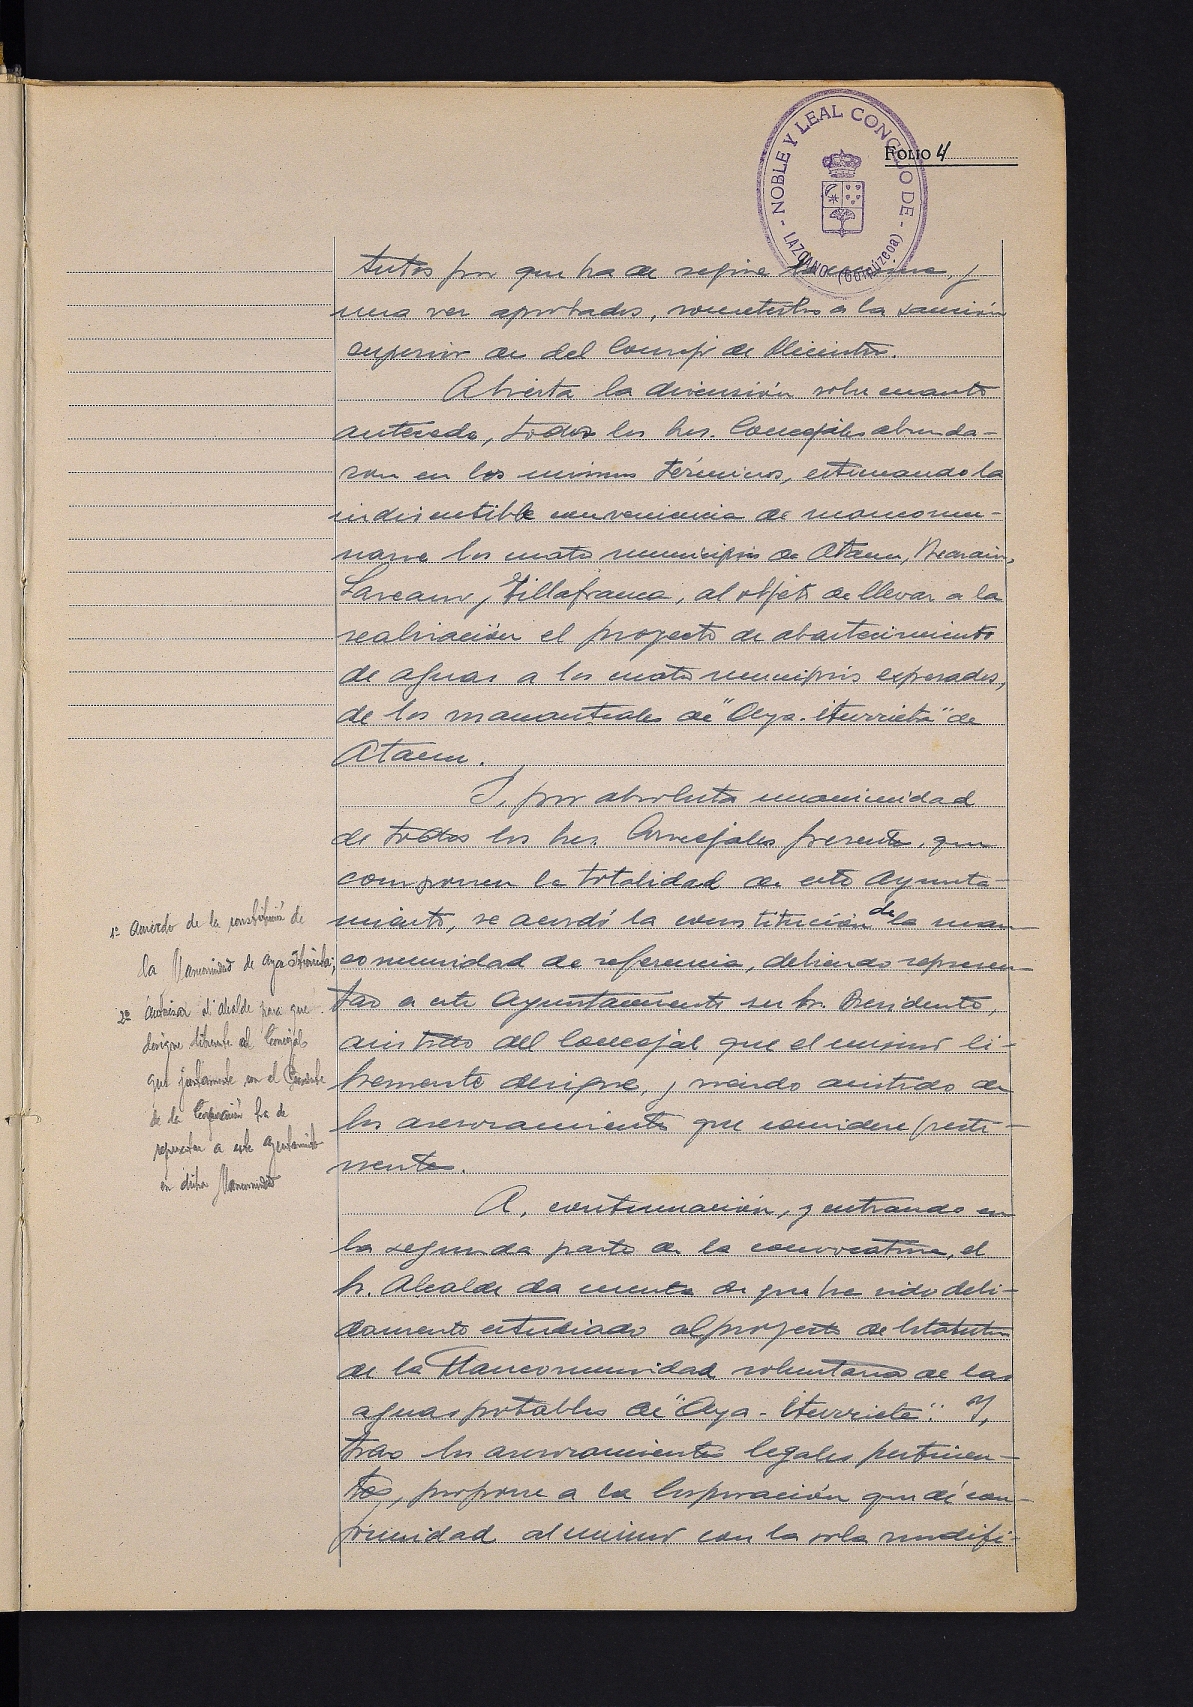 NOBLE Y LEAL CONCEJO DE
LAZCANO (Guipúzcoa)
FOLIO 4
tutos por que ha de regirse la misma, y
una vez aprobados, someterlos a la sanción
superior de del Consejo de Ministros.
Abierta la discusión sobre cuanto
antecede, todos los Sres. Concejales abunda-
ron en los mismos términos, estimando la
indiscutible conveniencia de mancomu-
narse los cuatro municipios de Ataun, Beasain,
Lazcano y Villafranca, al objeto de llevar a la
realización el proyecto de abastecimiento
de aguas a los cuatro municipios expresados,
de los manantiales de "Aya-Iturrieta" de
Ataun.
Y, por absoluta unanimidad
de todos los Sres. Concejales presentes, que
componen la totalidad de este Ayunta-
miento, se acordó la constitución de la man-
comunidad de referencia, debiendo represen-
tar a este Ayuntamiento su Sr. Presidente,
asistido del Concejal que el mismo li-
bremente designe, y siendo asistido de
los asesoramientos que considere perti-
nentes.
1º Acuerdo de la constitución de
la Mancomunidad de Aya-Iturrieta;
2º Autorizar al alcalde para que
designe libremente al Concejal
que juntamente con el Presidente
de la Corporación ha de
representar a este Ayuntamiento
en dicha Mancomunidad
A, continuación, y entrando en
la segunda parte de la convocatoria, el
Sr. Alcalde da cuenta de que ha sido debi-
damente estudiado el proyecto de Estatutos
de la Mancomunidad voluntaria de las
aguas potables de "Aya-Iturrieta". Y,
tras los asesoramientos legales pertinen-
tes, propone a la Corporación que dé con-
formidad al mismo con la sola modifi-